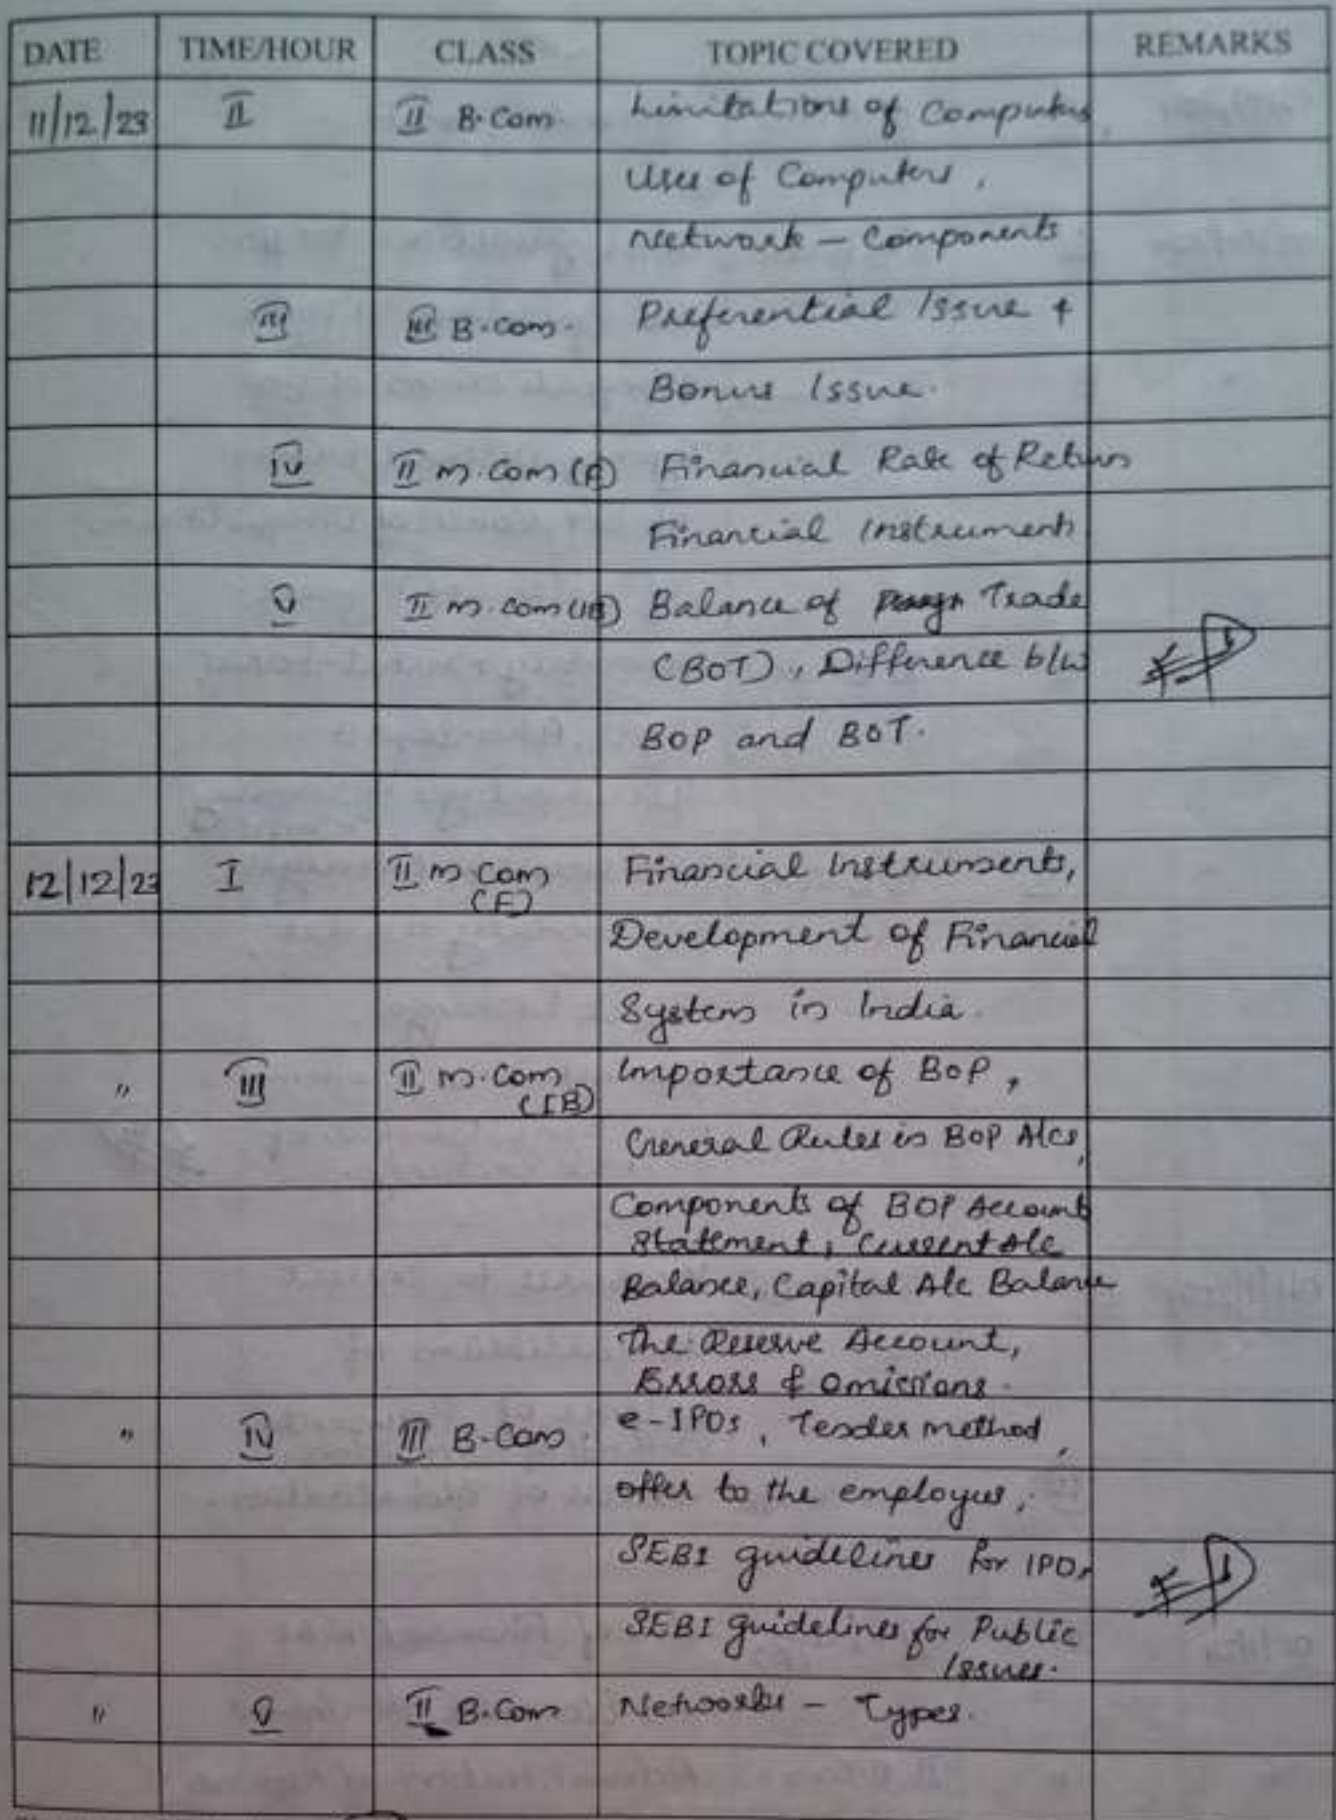 DATE TIME/HOUR CLASS TOPIC COVERED REMARKS
11/12/23 II II B.Com. Limitations of Computers
Uses of Computers,
Network – Components
III III B.Com. Preferential Issue &
Bonus Issue.
IV II M.Com (F) Financial Rate of Return
Financial Instruments
V II M.Com (IB) Balance of Trade
(BOT), Difference b/w
BOP and BOT.
12/12/23 I II M Com Financial Instruments,
(F)
Development of Financial
System in India.
" III II M.Com Importance of BOP,
(IB)
General Rules in BOP A/cs,
Components of BOP Account
Statement, Current A/c
Balance, Capital A/c Balance
The Reserve Account,
Errors & Omissions.
" IV III B.Com. e-IPOs, Tender method,
offer to the employees,
SEBI guidelines for IPO,
SEBI guidelines for Public
Issues.
" V II B.Com Networks – Types.